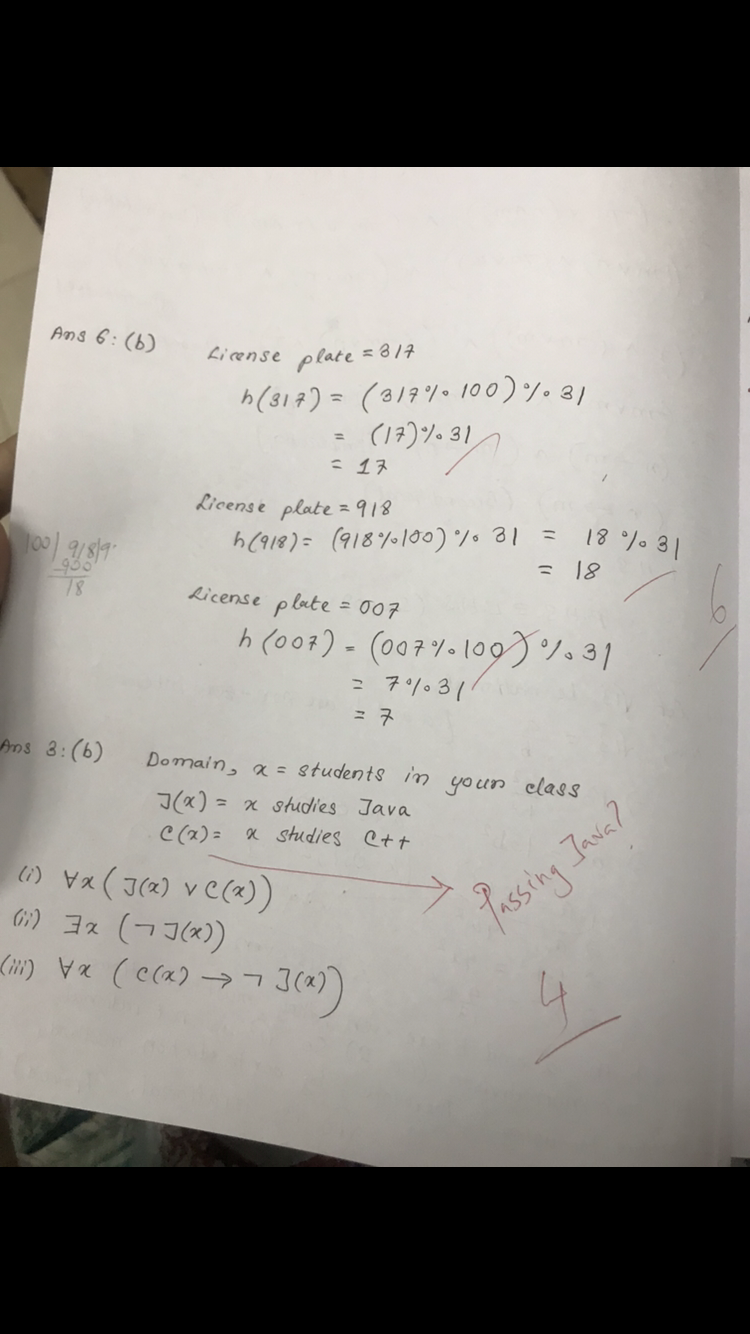 Ans 6: (b)
License plate = 317
h(317) = (317 % 100) % 31
= (17) % 31
= 17
License plate = 918
h(918) = (918 % 100) % 31 = 18 % 31
= 18
100) 918 (9
-900
18
License plate = 007
h(007) = (007 % 100) % 31
= 7 % 31
= 7
6
Ans 3: (b) Domain, x = students in your class
J(x) = x studies Java
C(x) = x studies C++
Passing Java?
(i) ∀x (J(x) ∨ C(x))
(ii) ∃x (¬J(x))
(iii) ∀x (C(x) → ¬J(x))
4